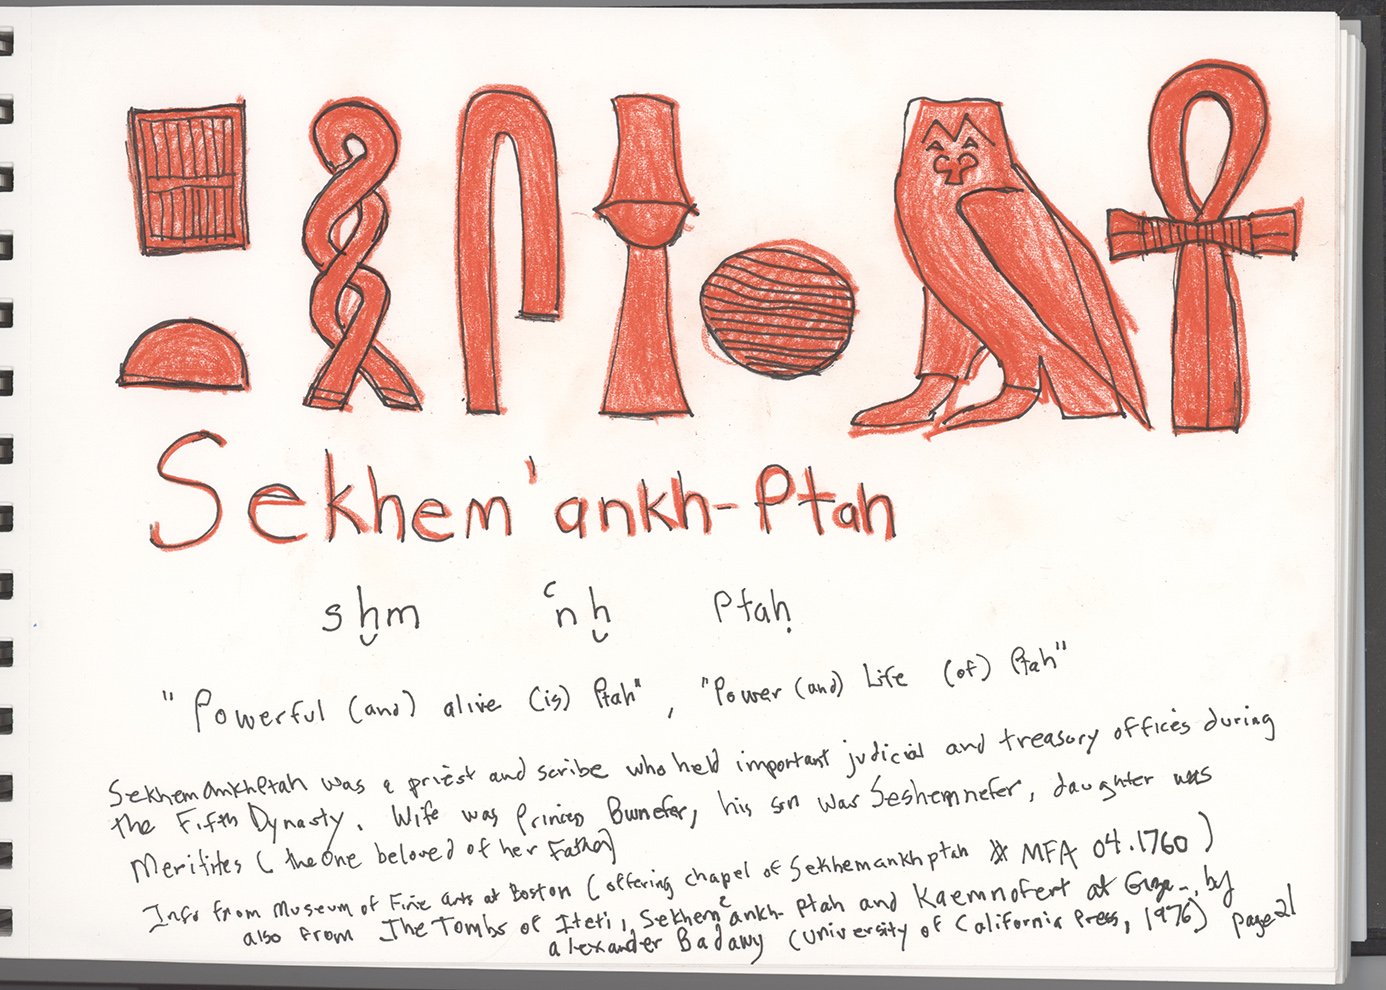 Sekhem'ankh-Ptah
sḫm ꜥnḫ Ptaḥ
"Powerful (and) alive (is) Ptah", "Power (and) Life (of) Ptah"
Sekhemankhptah was a priest and scribe who held important judicial and treasury offices during
the Fifth Dynasty. Wife was Princess Bunefer, his son was Seshemnefer, daughter was
Meritites (the One beloved of her Father)
Info from Museum of Fine Arts at Boston (offering chapel of Sekhemankhptah # MFA 04.1760)
also from The Tombs of Iteti, Sekhemꜥankh-Ptah and Kaemnofert at Giza, by
alexander Badawy (University of California Press, 1976) page 21